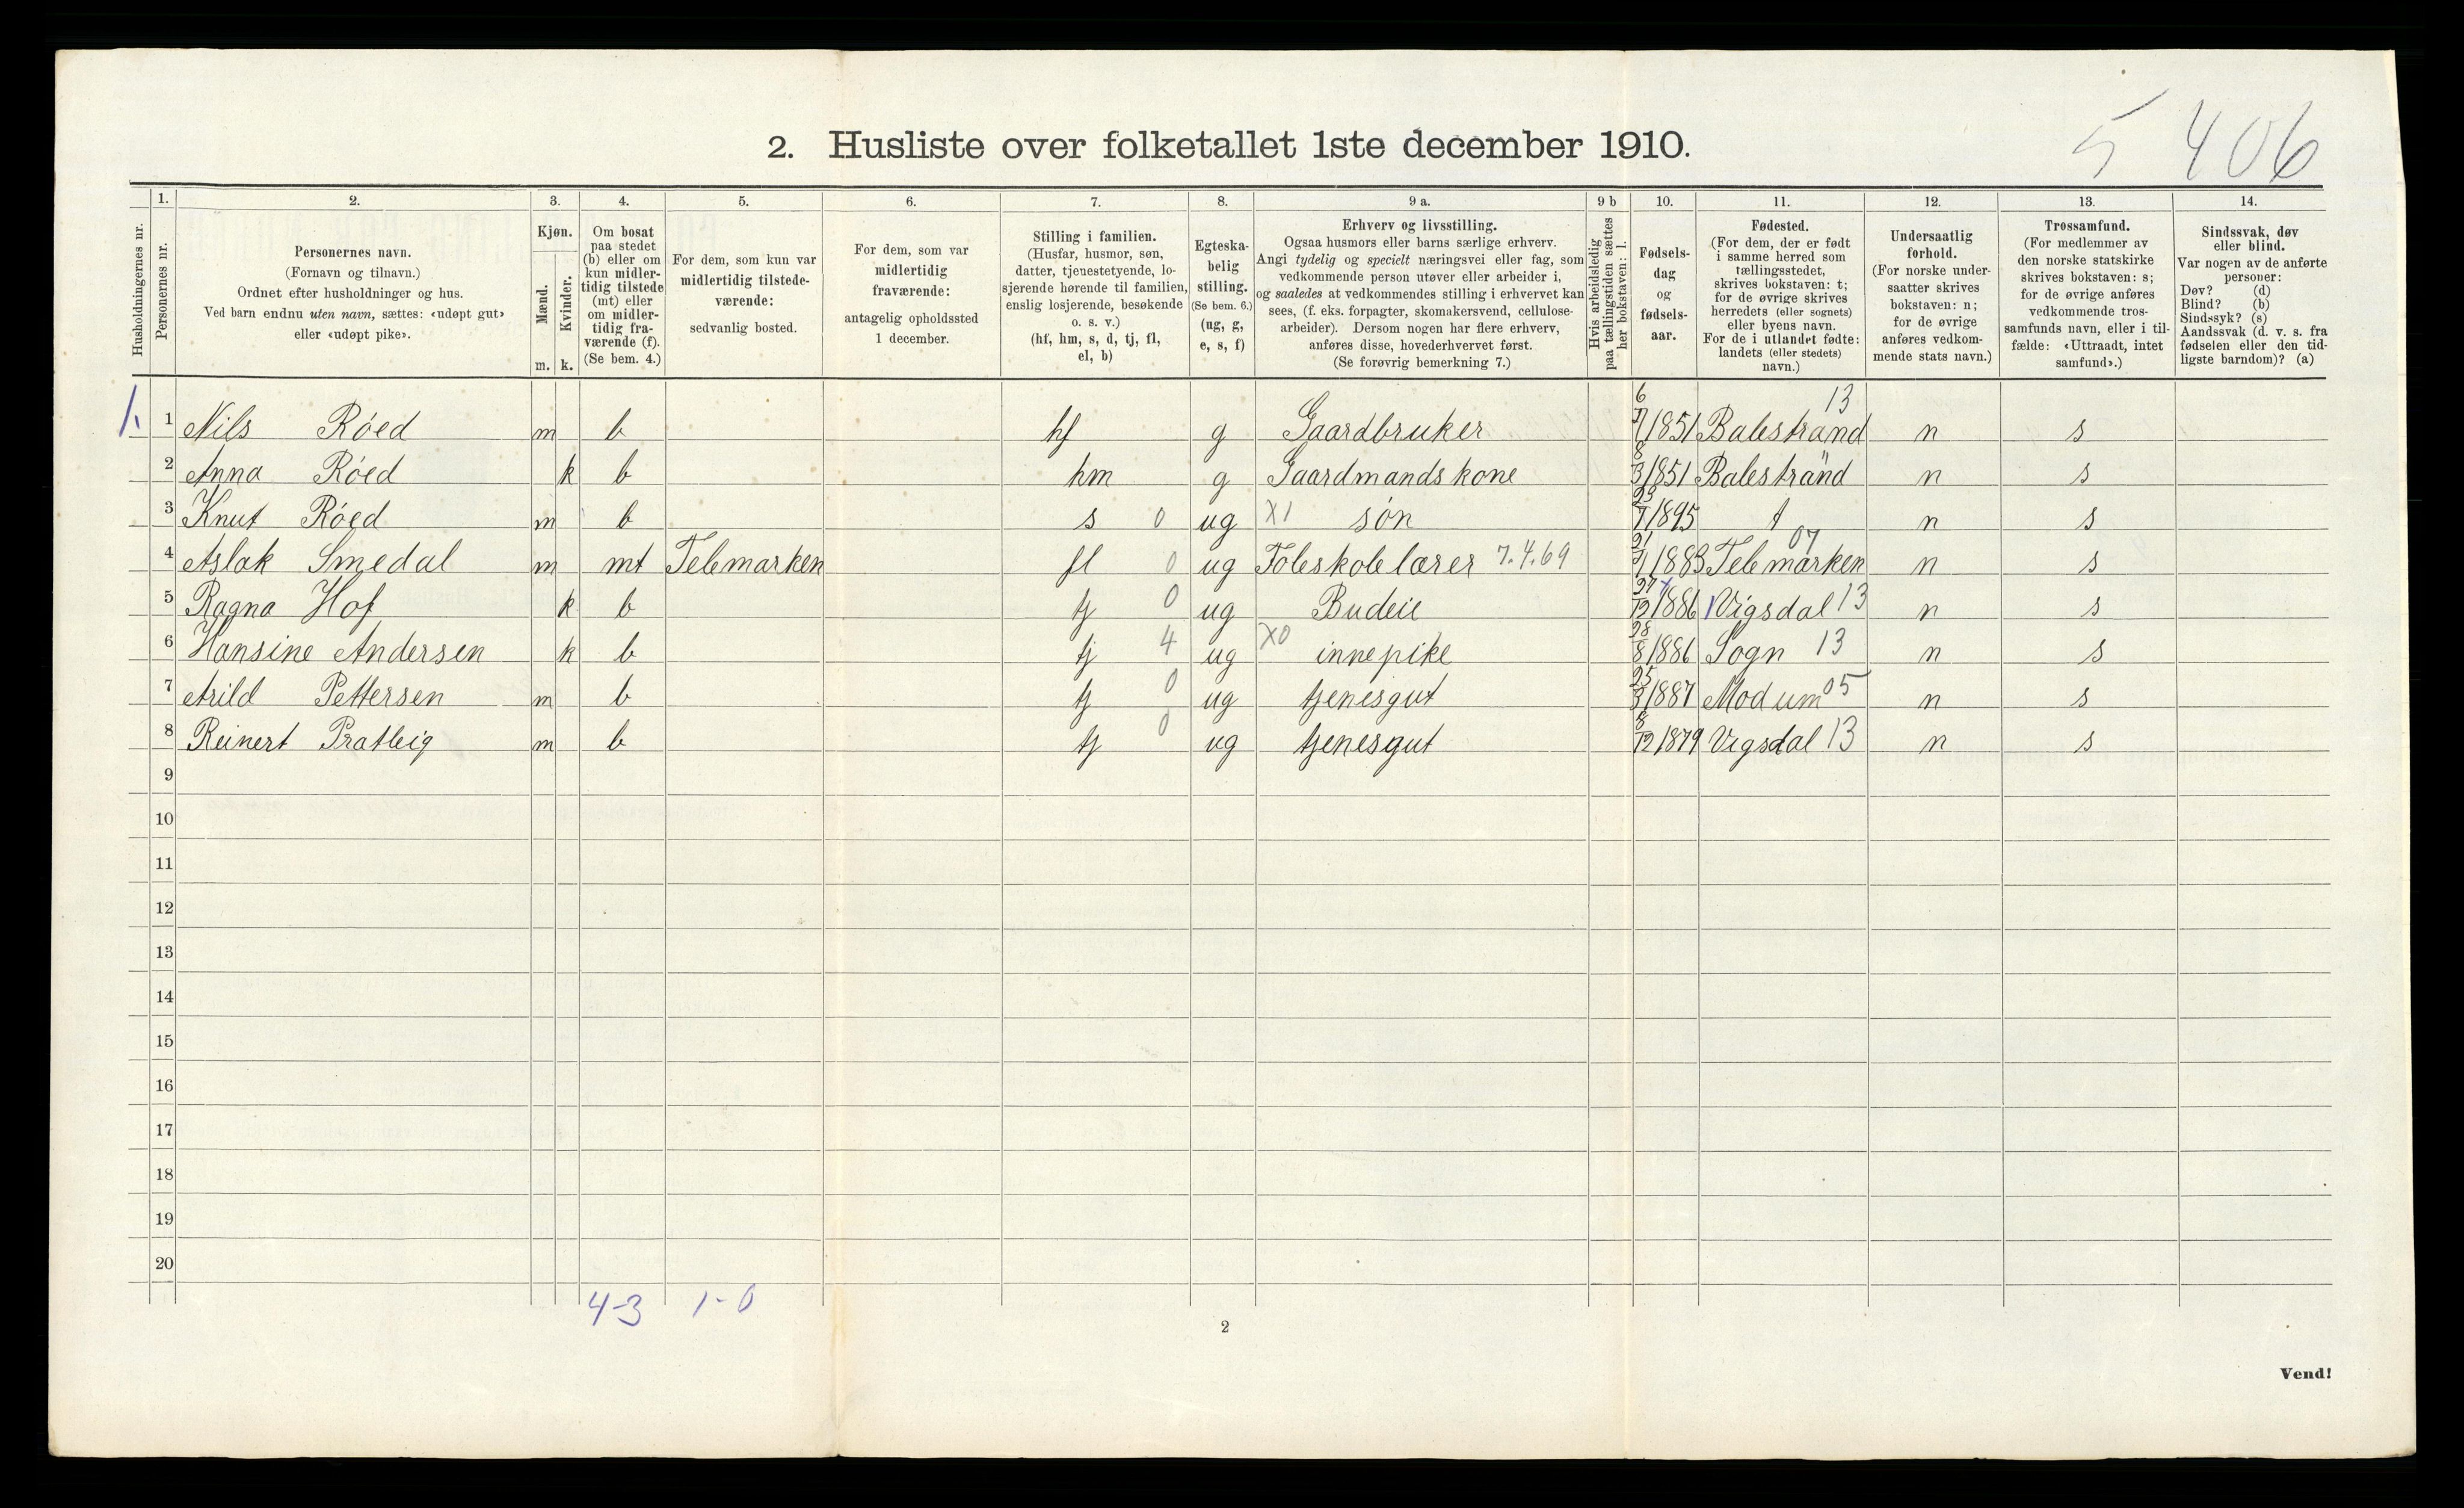 5 406
2. Husliste over folketallet 1ste december 1910.
Husholdningernes nr.
1. Personernes nr.
2. Personernes navn. (Fornavn og tilnavn.) Ordnet efter husholdninger og hus. Ved barn endnu uten navn, sættes: «udøpt gut» eller «udøpt pike».
3. Kjøn. Mænd. m. Kvinder. k.
4. Om bosat paa stedet (b) eller om kun midlertidig tilstede (mt) eller om midlertidig fraværende (f). (Se bem. 4.)
5. For dem, som kun var midlertidig tilstedeværende: sedvanlig bosted.
6. For dem, som var midlertidig fraværende: antagelig opholdssted 1 december.
7. Stilling i familien. (Husfar, husmor, søn, datter, tjenestetyende, losjerende hørende til familien, enslig losjerende, besøkende o. s. v.) (hf, hm, s, d, tj, fl, el, b)
8. Egteskabelig stilling. (Se bem. 6.) (ug, g, e, s, f)
9 a. Erhverv og livsstilling. Ogsaa husmors eller barns særlige erhverv. Angi tydelig og specielt næringsvei eller fag, som vedkommende person utøver eller arbeider i, og saaledes at vedkommendes stilling i erhvervet kan sees, (f. eks. forpagter, skomakersvend, cellulosearbeider). Dersom nogen har flere erhverv, anføres disse, hovederhvervet først. (Se forøvrig bemerkning 7.)
9 b Hvis arbeidsledig paa tællingstiden sættes her bokstaven: l.
10. Fødselsdag og fødselsaar.
11. Fødested. (For dem, der er født i samme herred som tællingsstedet, skrives bokstaven: t; for de øvrige skrives herredets (eller sognets) eller byens navn. For de i utlandet fødte: landets (eller stedets) navn.)
12. Undersaatlig forhold. (For norske undersaatter skrives bokstaven: n; for de øvrige anføres vedkommende stats navn.)
13. Trossamfund. (For medlemmer av den norske statskirke skrives bokstaven: s; for de øvrige anføres vedkommende trossamfunds navn, eller i tilfælde: «Uttraadt, intet samfund».)
14. Sindssvak, døv eller blind. Var nogen av de anførte personer: Døv? (d) Blind? (b) Sindssyk? (s) Aandssvak (d. v. s. fra fødselen eller den tidligste barndom)? (a)
1. 1 Nils Róed m b hf g Gaardbruker 6/7 1851 Balestrand 13 n s
2 Anna Róed k b hm g Gaardmandskone 8/3 1851 Balestrand n s
3 Knut Róed m b s 0 ug X1 són 1895 t n s
4 Aslak Smedal m mt Telemarken fl 0 ug Foleskolelærer 7.4.69 21/1 1883 Telemarken 07 n s
5 Ragna Hof k b tj 0 ug Budeie 24/12 1886 Vigsdal 13 n s
6 Hansine Andersen k b tj 4 ug X0 innepike 28/8 1886 Sogn 13 n s
7 Arild Pettersen m b tj 0 ug tjenesgut 25/3 1887 Modum 05 n s
8 Reinert Pratleig m b tj 0 ug tjenesgut 8/12 1879 Vigsdal 13 n s
9
10
11
12
13
14
15
16
17
18
19
20
4-3 1-0
2
Vend!